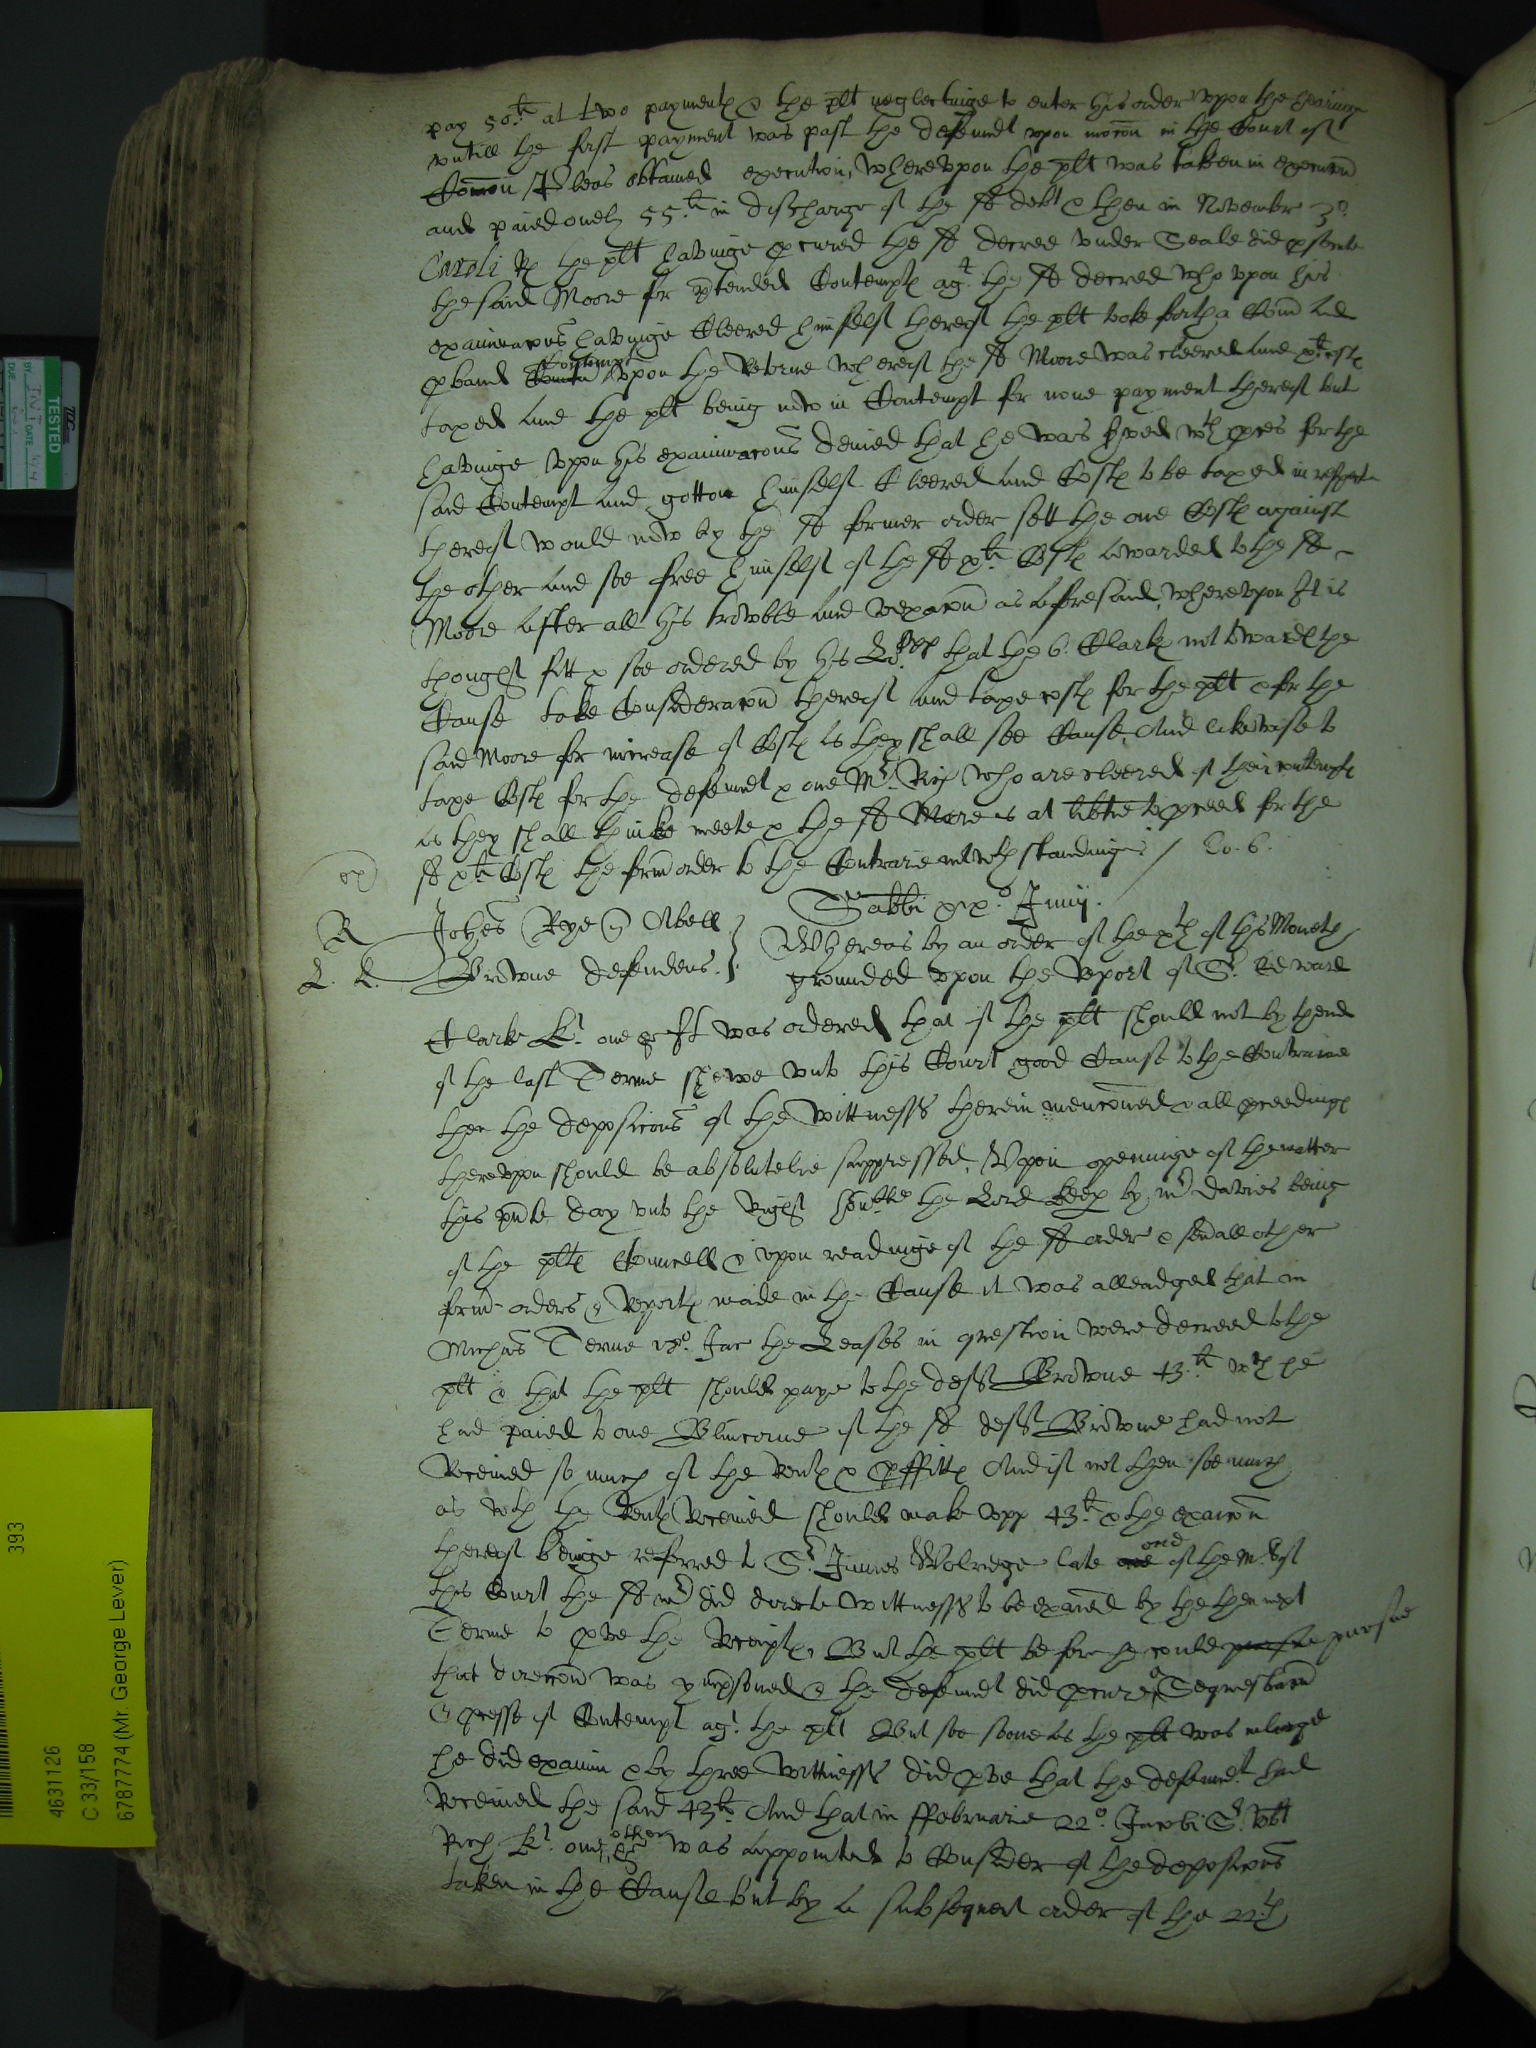 pay 50li at two paymentes & the plt neglectinge to enter his order uppon the hearinge
untill the first payment was past the defendt upon mocon in the Court of
Comon Pleas obtained execution, whereupon the plt was taken in execucon
and paied onely 55li in discharge of the sd debt & then in November 3o
Caroli Rs the plt havinge pcured the sd decree under Seale did psecute
the said Moore for ptended Contemptes agt the sd decree who upon his
examinacons havinge Cleered himselfe thereof the plt toke forth a Com and
pband Contempt upon the Retorne whereof the sd Moore was cleered and xli costes
taxed and the plt being now in Contempt for none payment thereof but
havinge upon his examinacons denied that he was served wth pces for the
said Contempt and gotton himselfe Cleered and Costes to be taxed in respecte
thereof would now by the sd former order sett the one Costes against
the other and soe free himselfe of the sd xli Costes awarded to the sd
Moore after all his trowble and vexacon as aforesaid, whereupon It is
thought fitt & soe ordered by his Lopp that the 6. Clarkes not towardes the
Cause take Consideracon thereof and taxe costes for the plt & for the
said Moore for increase of Costes as they shall see Cause, And likewise to
taxe Costes for the defendt & one Mr. Rich who are cleered of their contemptes
as they shall thinke meete & the sd Moore is at libtie to pceed for the
sd xli Costes the form order to the Contrarie notwthstandinge / Lo. 6.
Sabbi xxxo Junij.
R
Johes Rye Abell
Browne defendens.
Whereas by an order of the xth of this Moneth
grounded upon the Report of Sr. Edward
Clarke Kt. one &c It was ordered that if the plt should not by thend
of the last Terme shewe unto this Court good Cause to the Contrarie
then the deposicons of the wittnesses therein mencioned & all pceedinges
thereupon should be absolutelie suppressed, Upon openinge of the matter
this pnte day unto the Right honble the Lord keep by mr davies being
of the pltes Councell & upon readinge of the sd order & sevall other
form orders & Reportes made in the Cause it was alleadged that in
Michas Terme 18o. Jac the Leases in question were decreed to the
plt & that the plt should paye to the deft Browne 43.li wch he
had paied to one Blincorne if the sd deft Browne had not
Received so much of the Rentes & pffittes And if not then soe much
as wth the Rentes Received should make upp 43.li & the examcon
thereof beinge referred to Sr. James Wolridge late one of the Mrs of
this Court the sd mr did directe wittnesses to be examed by the then next
Terme to pve the Receiptes, But the plt before he could pursue
that direccon was ymprisoned & the defendt did pcure a Sequestracon
& pcesse of Contempt agt. the plt But soe soone as the plt was enlarged
he did examin & by three wittnesses did pve that the defendt. had
Received the said 43li And that in ffebruarie 22o. Jacobi Sr. Robt
Rich Kt. one other &c was appointed to Consider of the deposicons
taken in the Cause but by a subsequent order of the 22.th
TESTED
DATE
DUE
393
4631126
C 33/158
6787774 (Mr. George Lever)